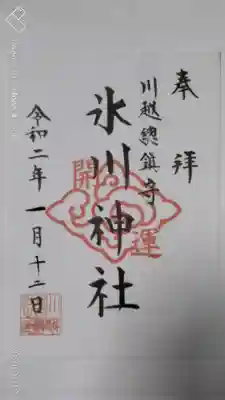 奉拝
川越總鎮守
氷川神社
開運
令和二年一月十二日